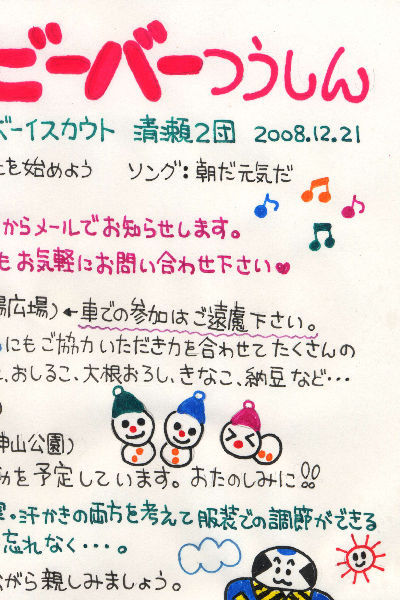 ビーバーつうしん
ボーイスカウト 清瀬2団 2008.12.21
を始めよう ソング:朝だ元気だ
からメールでお知らせします。
もお気軽にお問い合わせ下さい♥
場広場)←車での参加はご遠慮下さい。
にもご協力いただき力を合わせてたくさんの
、おしるこ、大根おろし、きなこ、納豆など・・・
)
神山公園)
を予定しています。おたのしみに!!
・汗かきの両方を考えて服装での調節ができる
忘れなく・・・。
ながら親しみましょう。